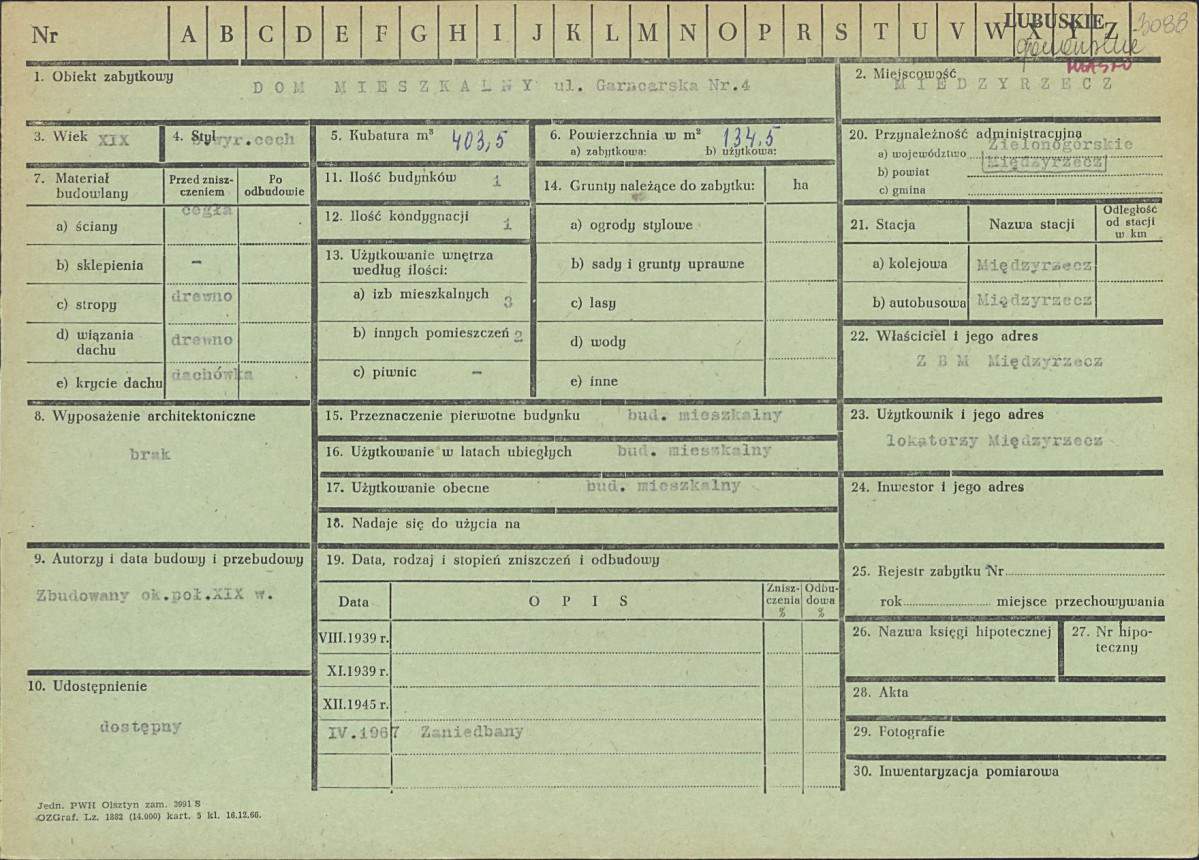 Nr A B C D E F G H I J K L M N O P R S T U V W X Y Z
LUBUSKIE 3088
MIASTO
1. Obiekt zabytkowy
DOM MIESZKALNY ul. Garncarska Nr.4
2. Miejscowość
MIEDZYRZECZ
3. Wiek XIX
4. Styl
wyr.cech
5. Kubatura m³ 403,5
6. Powierzchnia w m² 134,5
a) zabytkowa: b) użytkowa:
7. Materiał budowlany
Przed znisz-
czeniem
Po
odbudowie
a) ściany cegła
b) sklepienia –
c) stropy drewno
d) wiązania
dachu drewno
e) krycie dachu dachówka
8. Wyposażenie architektoniczne
brak
9. Autorzy i data budowy i przebudowy
Zbudowany ok.poł.XIX w.
10. Udostępnienie
dostępny
11. Ilość budynków 1
12. Ilość kondygnacji 1
13. Użytkowanie wnętrza
według ilości:
a) izb mieszkalnych 3
b) innych pomieszczeń 2
c) piwnic –
14. Grunty należące do zabytku: ha
a) ogrody stylowe
b) sady i grunty uprawne
c) lasy
d) wody
e) inne
15. Przeznaczenie pierwotne budynku bud. mieszkalny
16. Użytkowanie w latach ubiegłych bud. mieszkalny
17. Użytkowanie obecne bud. mieszkalny
18. Nadaje się do użycia na
19. Data, rodzaj i stopień zniszczeń i odbudowy
Data
OPIS
Znisz-
czenia
%
Odbu-
dowa
%
VIII.1939 r.
XI.1939 r.
XII.1945 r.
IV.1967 Zaniedbany
20. Przynależność administracyjna
a) województwo Zielonogórskie
b) powiat Międzyrzecz
c) gmina
21. Stacja
Nazwa stacji
Odległość
od stacji
w km
a) kolejowa Międzyrzecz
b) autobusowa Międzyrzecz
22. Właściciel i jego adres
Z B M Międzyrzecz
23. Użytkownik i jego adres
lokatorzy Międzyrzecz
24. Inwestor i jego adres
25. Rejestr zabytku Nr
rok miejsce przechowywania
26. Nazwa księgi hipotecznej
27. Nr hipo-
teczny
28. Akta
29. Fotografie
30. Inwentaryzacja pomiarowa
Jedn. PWH Olsztyn zam. 3991 S
OZGraf. Lz. 1882 (14.000) kart. 5 kl. 16.12.66.